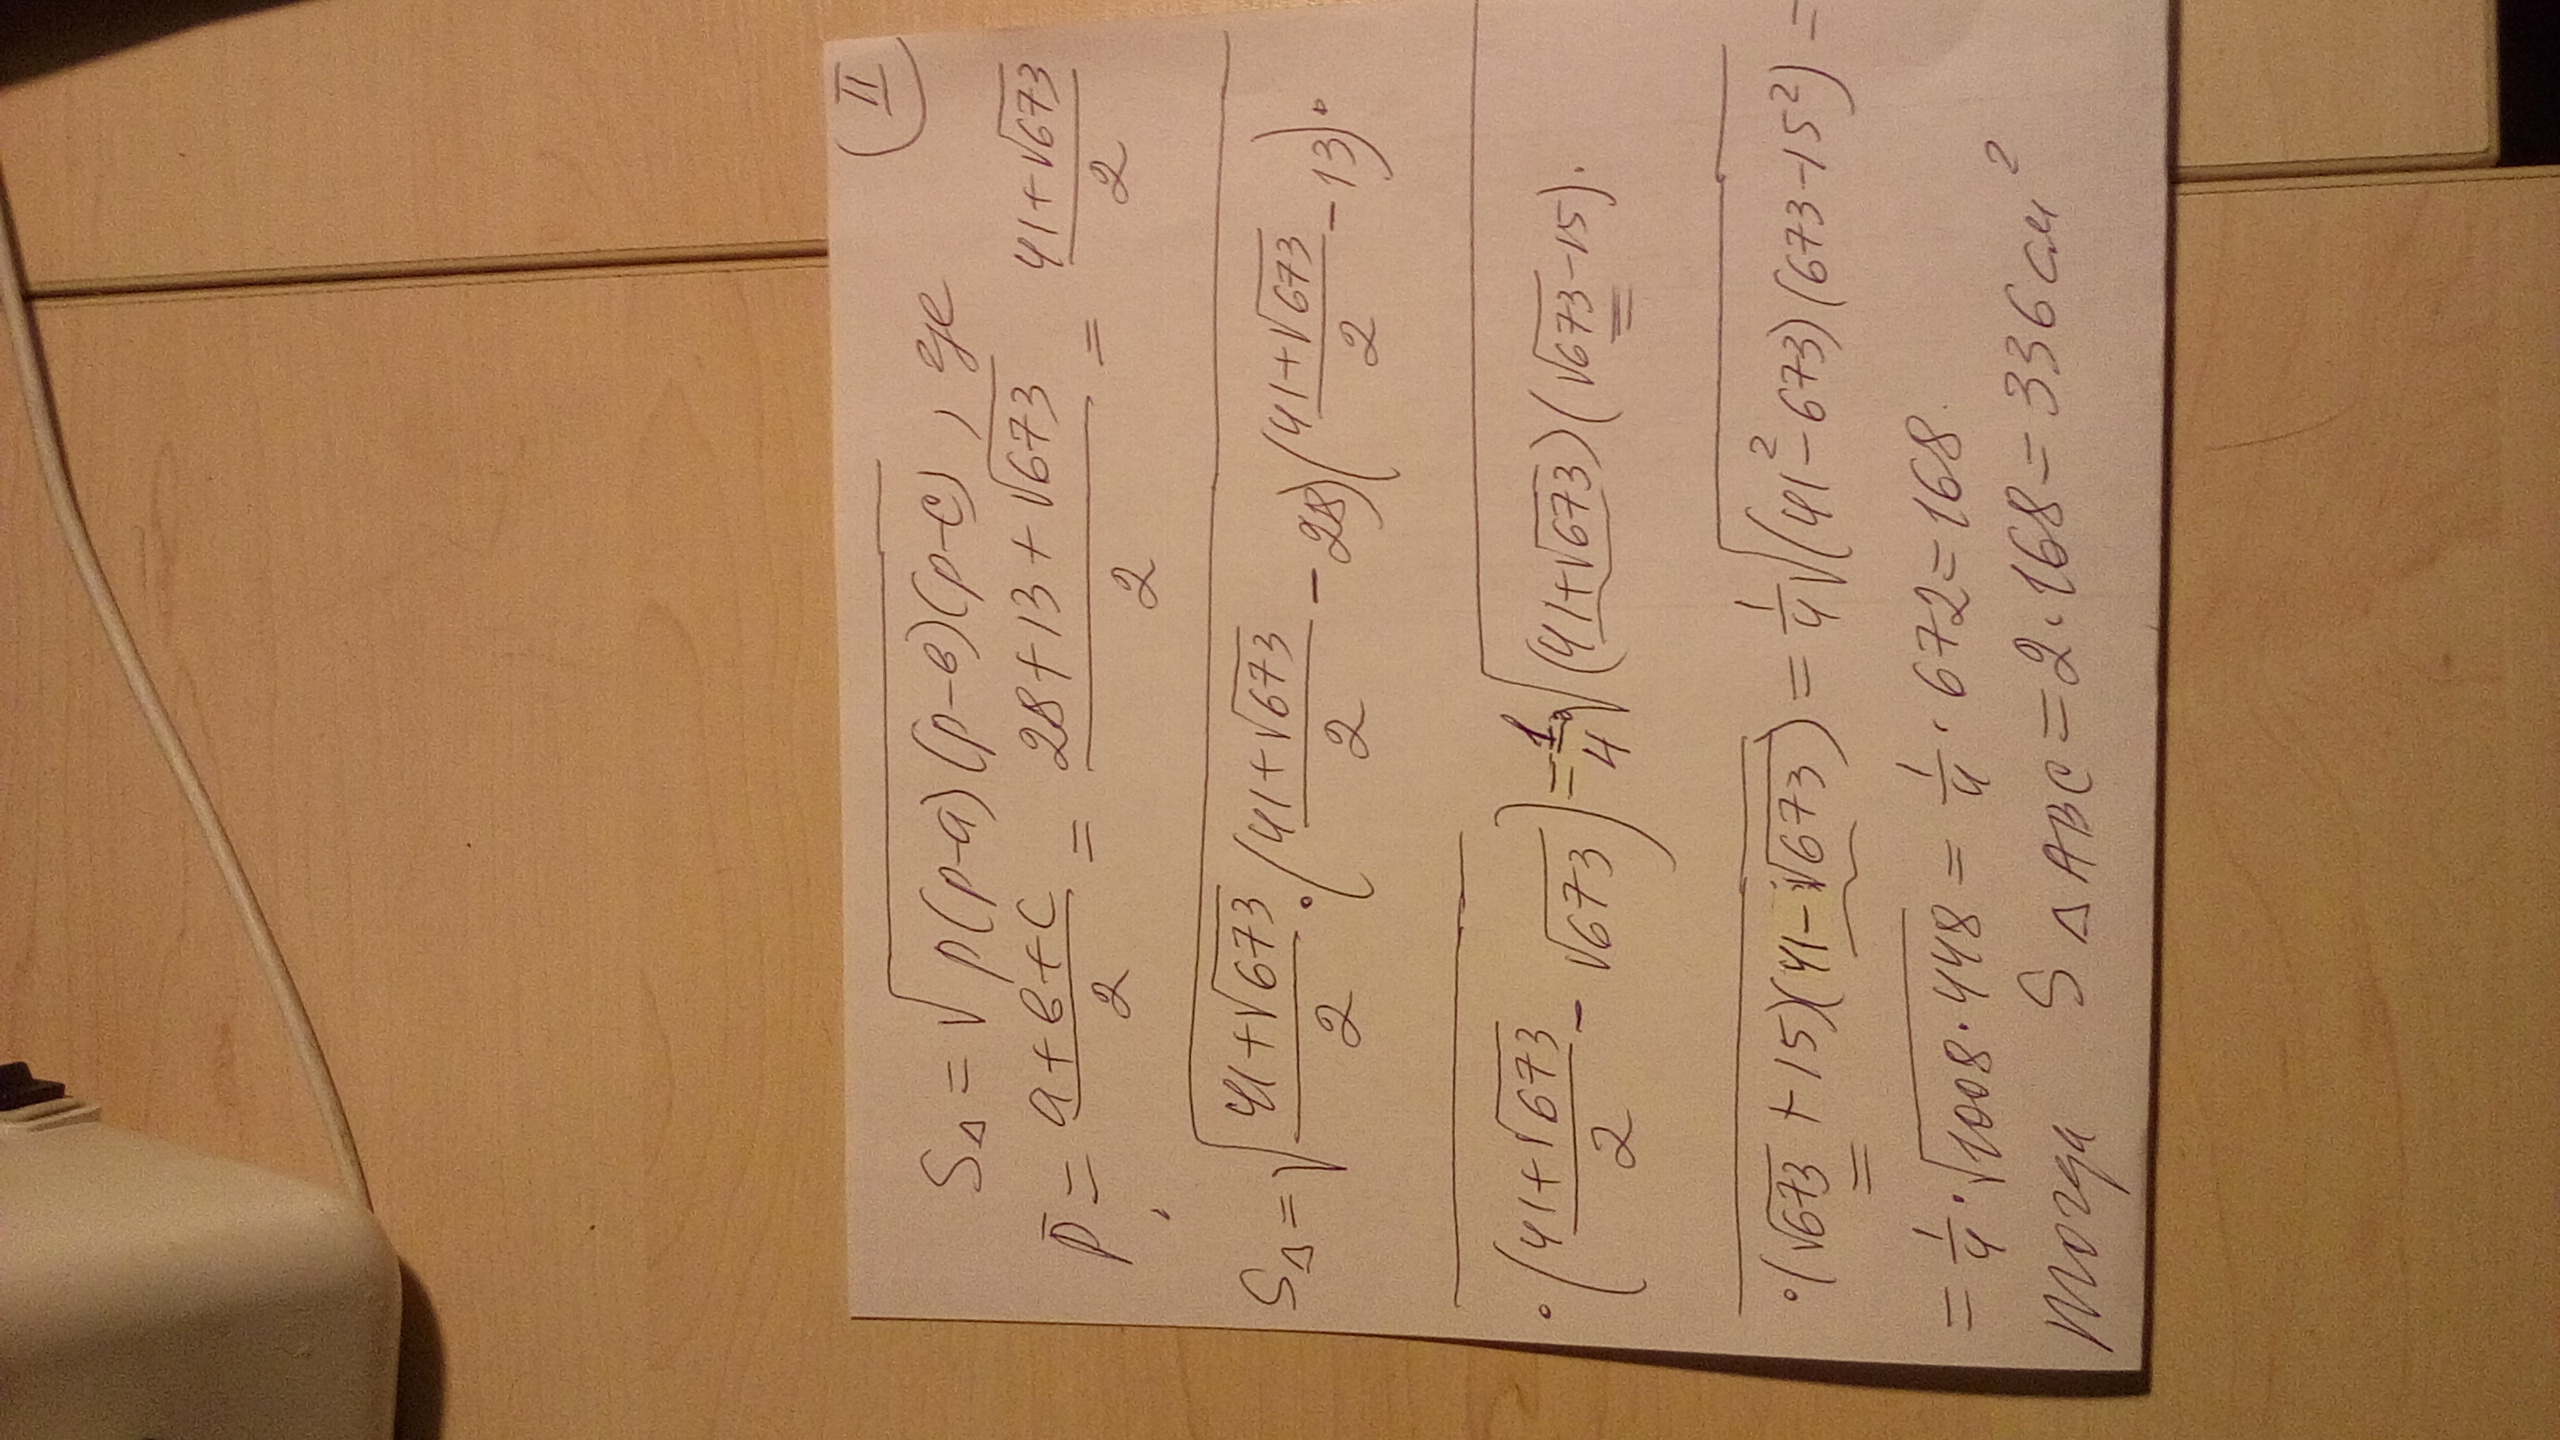 II
S△ = √(p(p-a)(p-в)(p-c)), где
p = (a+в+c)/2 = (28+13+√673)/2 = (41+√673)/2
S△ = √((41+√673)/2 · ((41+√673)/2 - 28)((41+√673)/2 - 13) ·
· ((41+√673)/2 - √673)) = 1/4 √((41+√673)(√673-15) ·
· (√673+15)(41-√673)) = 1/4 √((41²-673)(673-15²)) =
= 1/4 · √(1008·448) = 1/4 · 672 = 168.
тогда S △ ABC = 2·168 = 336 см²